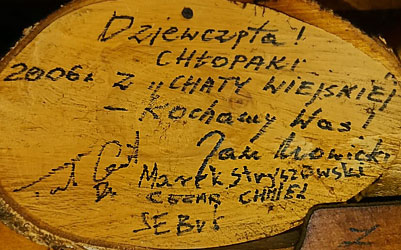 Dziewczęta!
CHŁOPAKI
2006r. Z „CHATY WIEJSKIEJ
- Kochamy Was!
Jan Nowicki
Marek Stryszowski
CEZAR CHMIEL
SEBUŚ